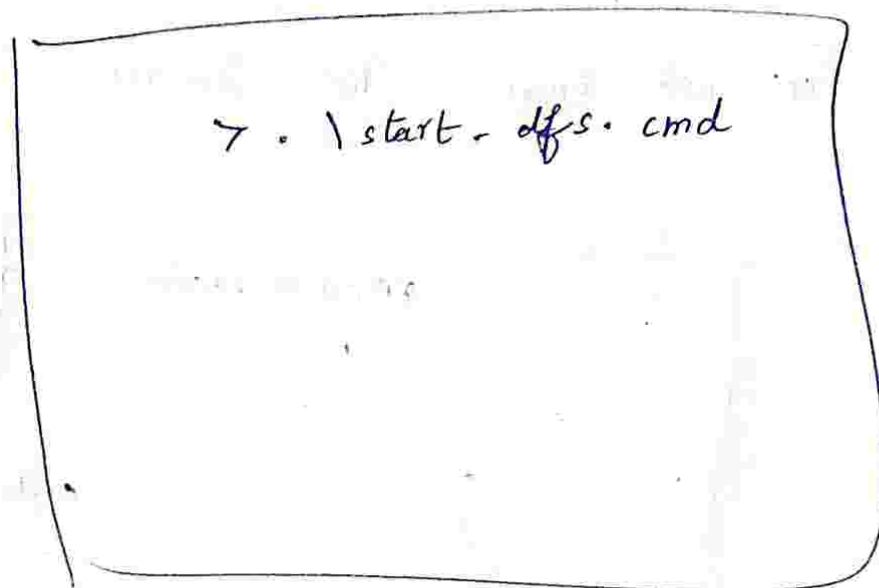 > . \ start - dfs . cmd